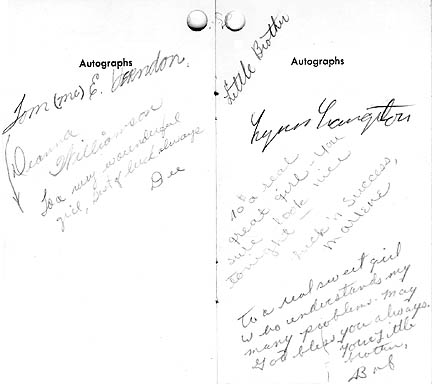 Autographs
Tom (me) E. Herndon.
Deanna
Williamson
To a very wounderful
girl, Best of luck always
Dee
Little Brother
Autographs
Langston
To a real
great girl - You
sure look nice
tonight -
luck 'n success,
Marlene
To a real sweet girl
who understands my
many problems. May
God bless you always.
Your little
brother,
Bob